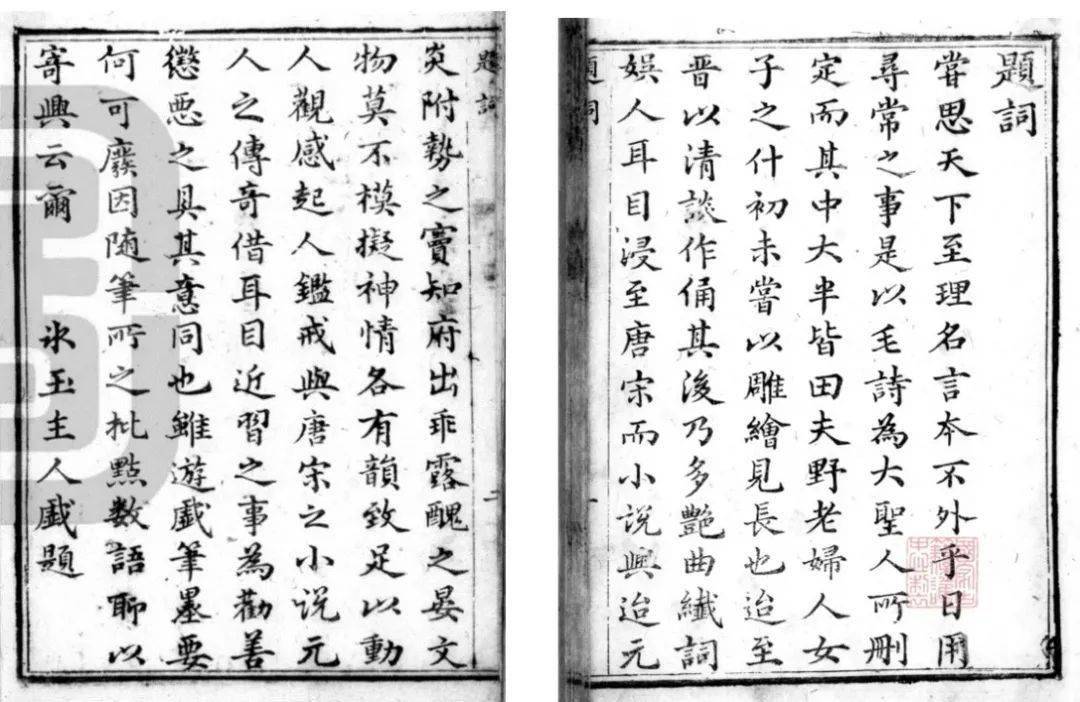 題詞
甞思天下至理名言本不外乎日用
尋常之事是以毛詩為大聖人所刪
定而其中大半皆田夫野老婦人女
子之什初未嘗以雕繪見長也迨至
晋以清談作俑其後乃多艷曲纖詞
娛人耳目浸至唐宋而小说興迨元
題詞 一
題詞 二
炎附勢之竇知府出乖露醜之晏文
物莫不模擬神情各有韻致足以動
人觀感起人鑑戒與唐宋之小说元
人之傳奇借耳目近習之事為勸善
懲惡之具其意同也雖遊戲筆墨要
何可廢因随筆所之批點数語聊以
寄興云爾 氷玉主人戲題